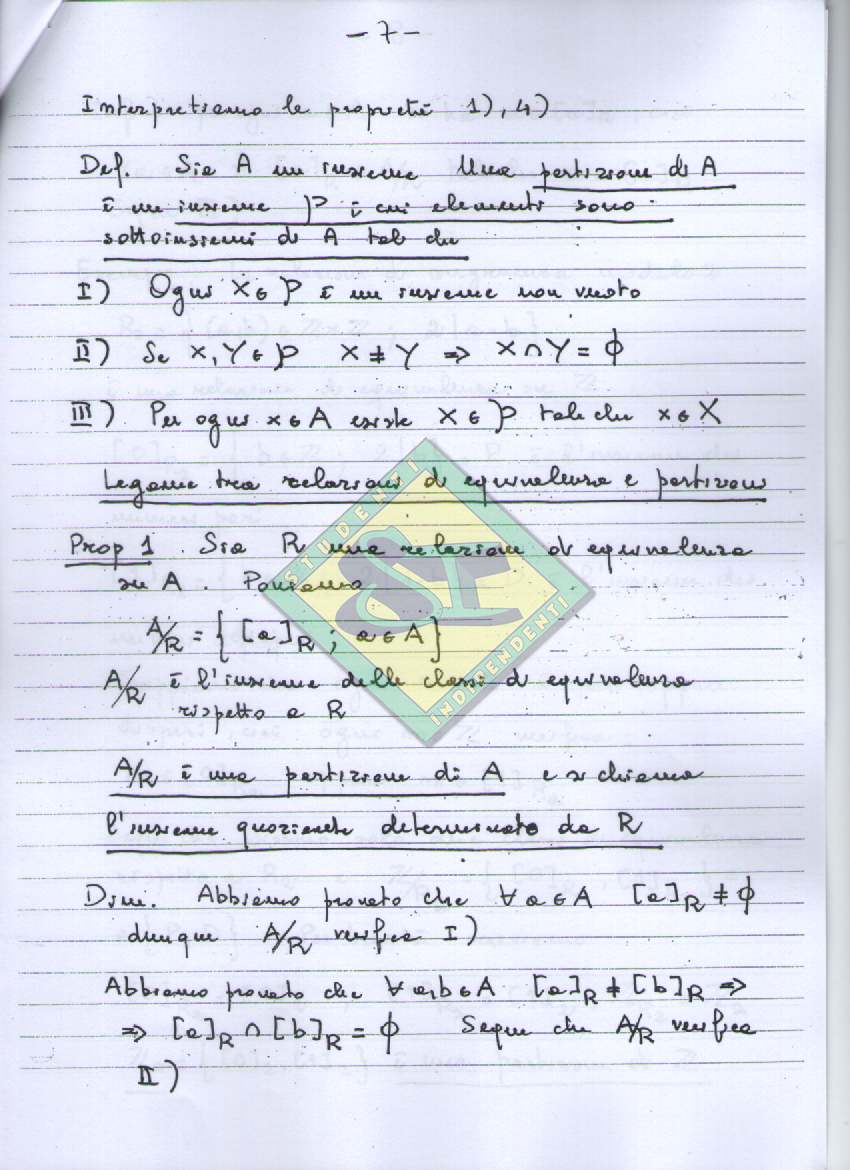 - 7 -
Interpretiamo le proprietà 1), 4)
Def. Sia A un insieme Una partizione di A
è un insieme P i cui elementi sono
sottoinsiemi di A tali che
I) Ogni X ∈ P è un insieme non vuoto
II) Se X, Y ∈ P X ≠ Y ⇒ X ∩ Y = ϕ
III) Per ogni x ∈ A esiste X ∈ P tale che x ∈ X
Legame tra relazioni di equivalenza e partizioni
Prop 1. Sia R una relazione di equivalenza
su A. Poniamo
A/R = { [a]R ; a ∈ A }
A/R è l'insieme delle classi di equivalenza
rispetto a R
A/R è una partizione di A e si chiama
l'insieme quoziente determinato da R
Dim. Abbiamo provato che ∀ a ∈ A [a]R ≠ ϕ
dunque A/R verifica I)
Abbiamo provato che ∀ a,b ∈ A [a]R ≠ [b]R ⇒
⇒ [a]R ∩ [b]R = ϕ Segue che A/R verifica
II)
STUDENTI
SI
INDIPENDENTI